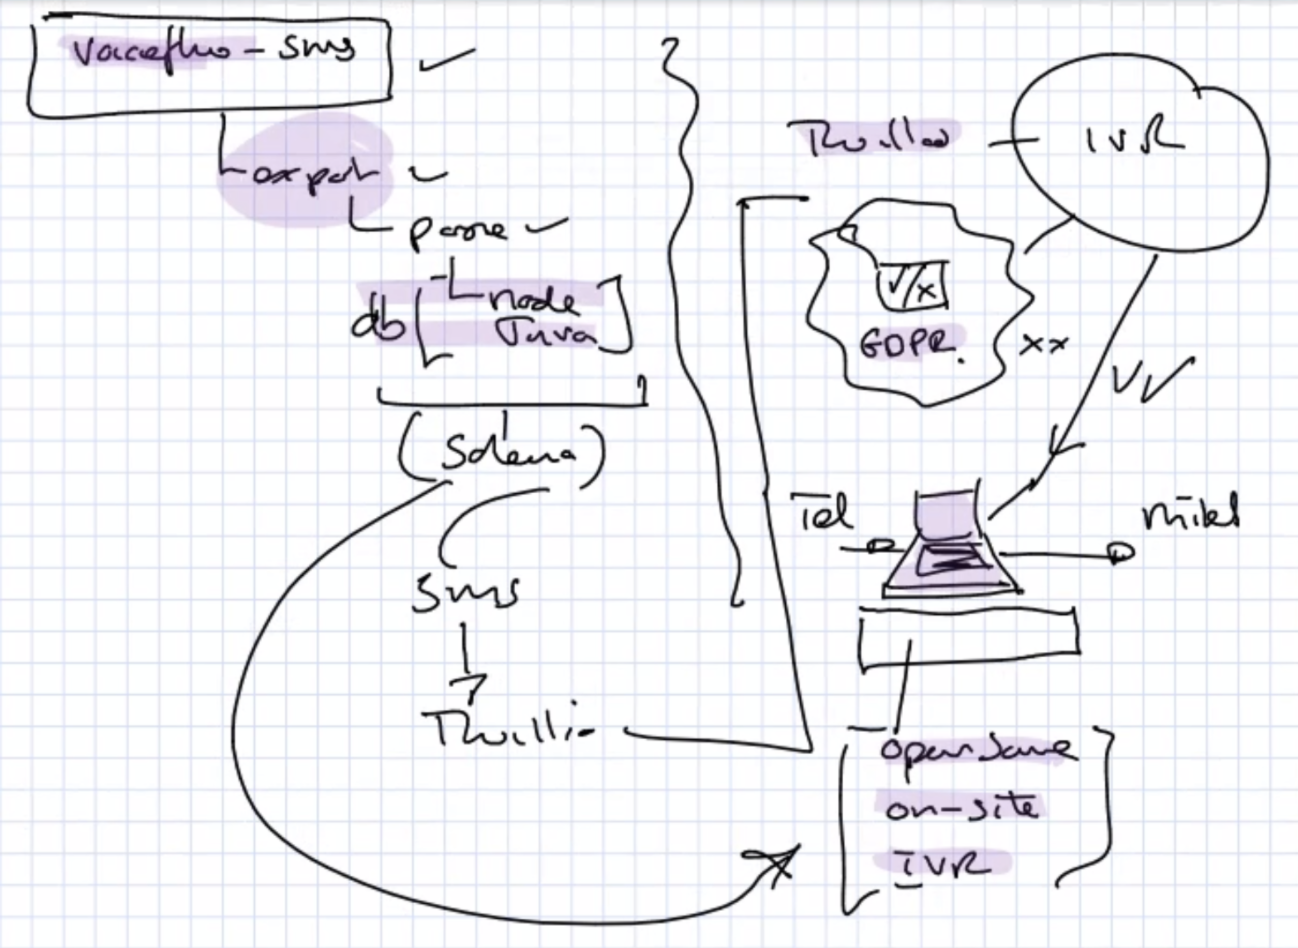 Voiceflow - sms
export
parse
node
db
Java
(Solena)
sms
Twillio
Twillio
IVR
V/x
GDPR.
xx
Tel
Mitel
open source
on-site
IVR